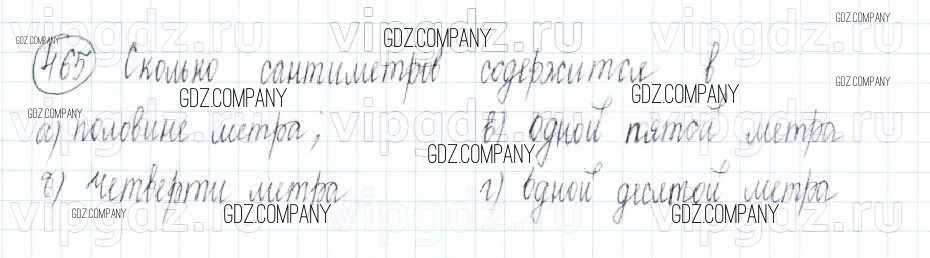 vipgdz.ru vipgdz.ru vipgdz.ru
GDZ.COMPANY
GDZ.COMPANY
GDZ.COMPANY
465 Сколько сантиметров содержится в
GDZ.COMPANY
GDZ.COMPANY GDZ.COMPANY
GDZ.COMPANY
vipgdz.ru vipgdz.ru vipgdz.ru
а) половине метра; в) одной пятой метра
GDZ.COMPANY
б) четверти метра г) одной десятой метра
GDZ.COMPANY GDZ.COMPANY GDZ.COMPANY
vipgdz.ru vipgdz.ru vipgdz.ru